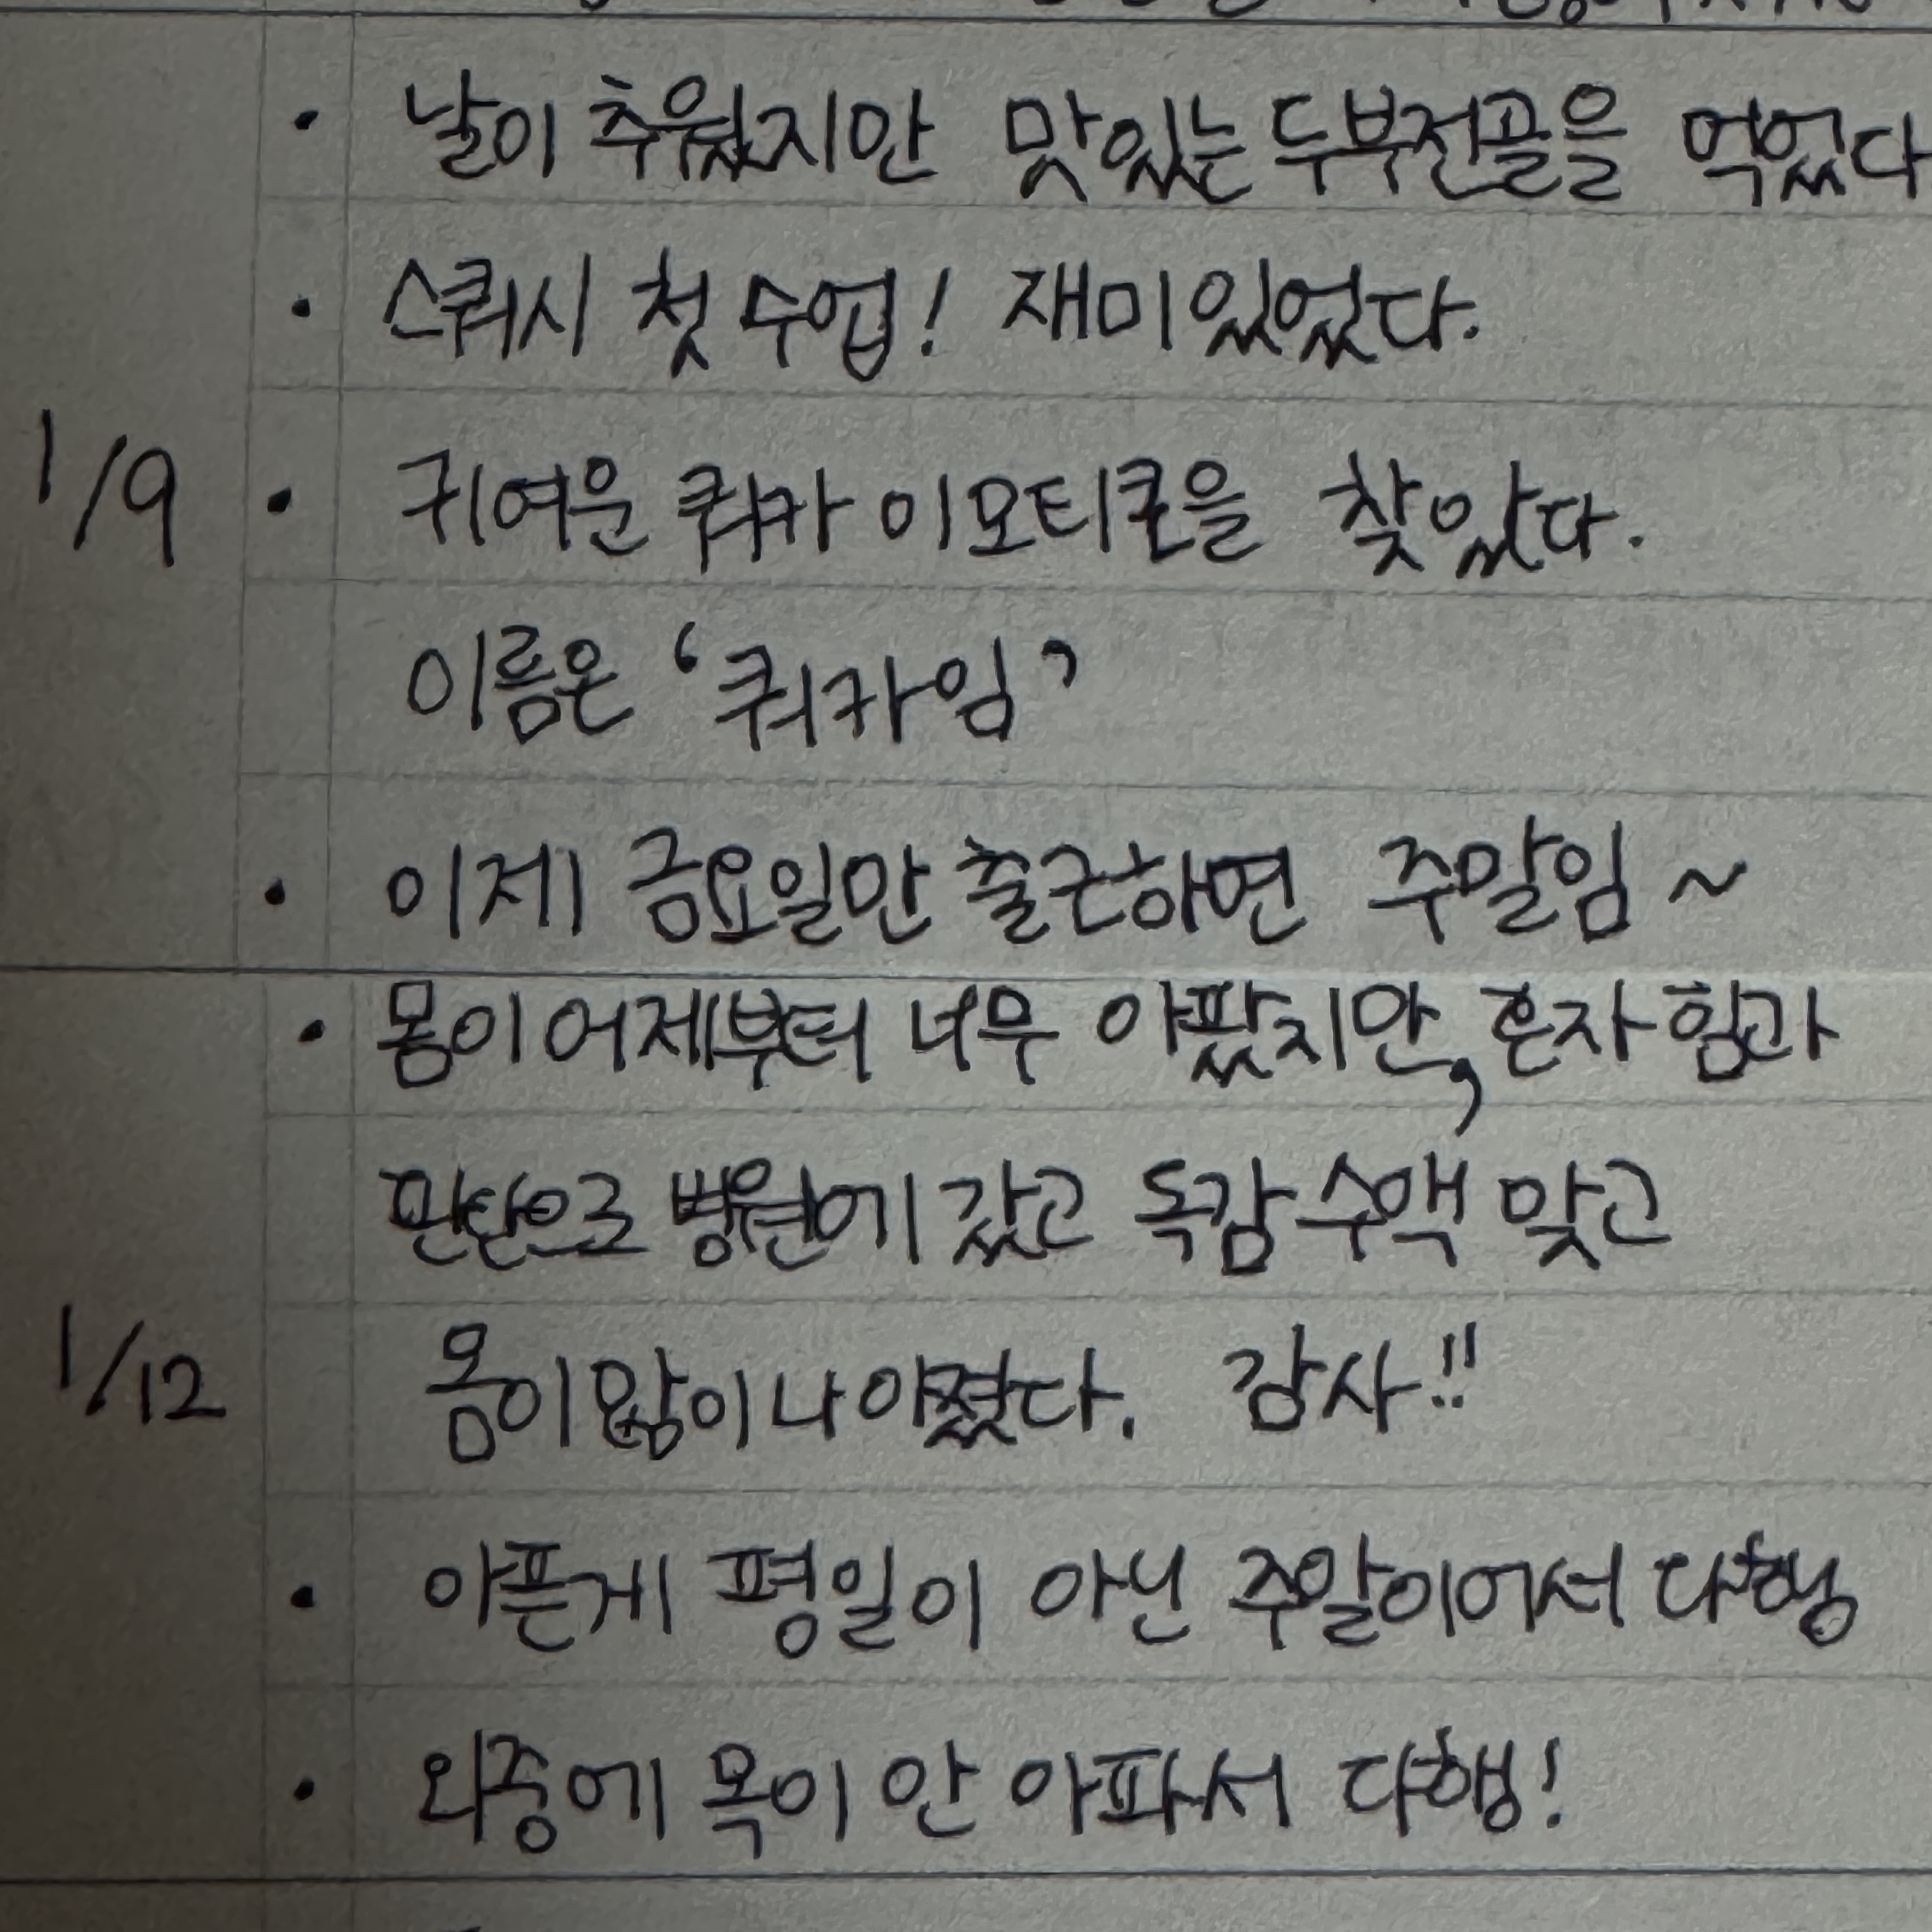 · 날이 추웠지만 맛있는 두부전골을 먹었다
· 스쿼시 첫 수업! 재미있었다.
1/9 · 귀여운 쿼카 이모티콘을 찾았다.
이름은 ‘쿼카임’
· 이제 금요일만 출근하면 주말임 ~
· 몸이 어제부터 너무 아팠지만, 혼자 힘과
판단으로 병원에 갔고 독감 수액 맞고
1/12 몸이 많이 나아졌다. 감사!!
· 아픈게 평일이 아닌 주말이어서 다행
· 와중에 목이 안 아파서 다행!